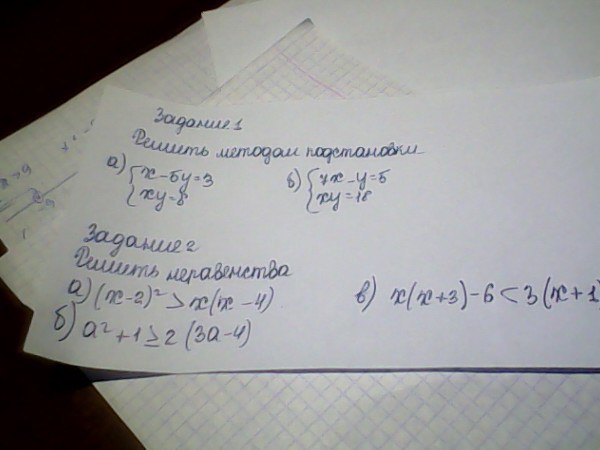 Задание 1
Решить методом подстановки
а) { x - 5y = 3 б) { 7x - y = 5
{ xy = 8 { xy = 18
Задание 2
Решить неравенства
а) (x - 2)² > x(x - 4) в) x(x + 3) - 6 < 3(x + 1)
б) a² + 1 ≥ 2(3a - 4)